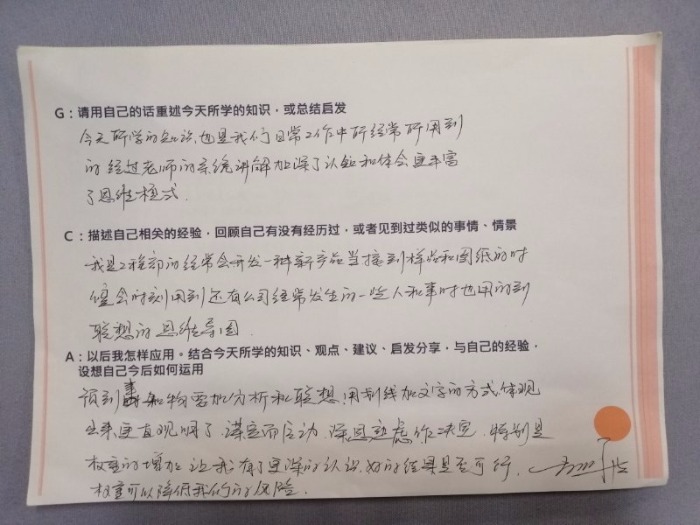 G：请用自己的话重述今天所学的知识，或总结启发
今天所学的知识也是我们日常工作中所经常所用到
的经过老师的系统讲解加深了认知和体会更丰富
了思维模式.
C：描述自己相关的经验，回顾自己有没有经历过，或者见到过类似的事情、情景
我是工程部的经常会开发一种新产品当接到样品和图纸的时
候会时刻用到还有公司经常发生的一些人和事时也用的到
联想的思维导图.
A：以后我怎样应用。结合今天所学的知识、观点、建议、启发分享，与自己的经验，
设想自己今后如何运用
遇到事和物要加分析和联想.用划线加文字的方式体现
出来更直观明了.谋定而后动.深思熟虑作决定.特别是
权重的增加让我有了更深的认识.好的结果是否可行.
权重可以降低我们的风险.